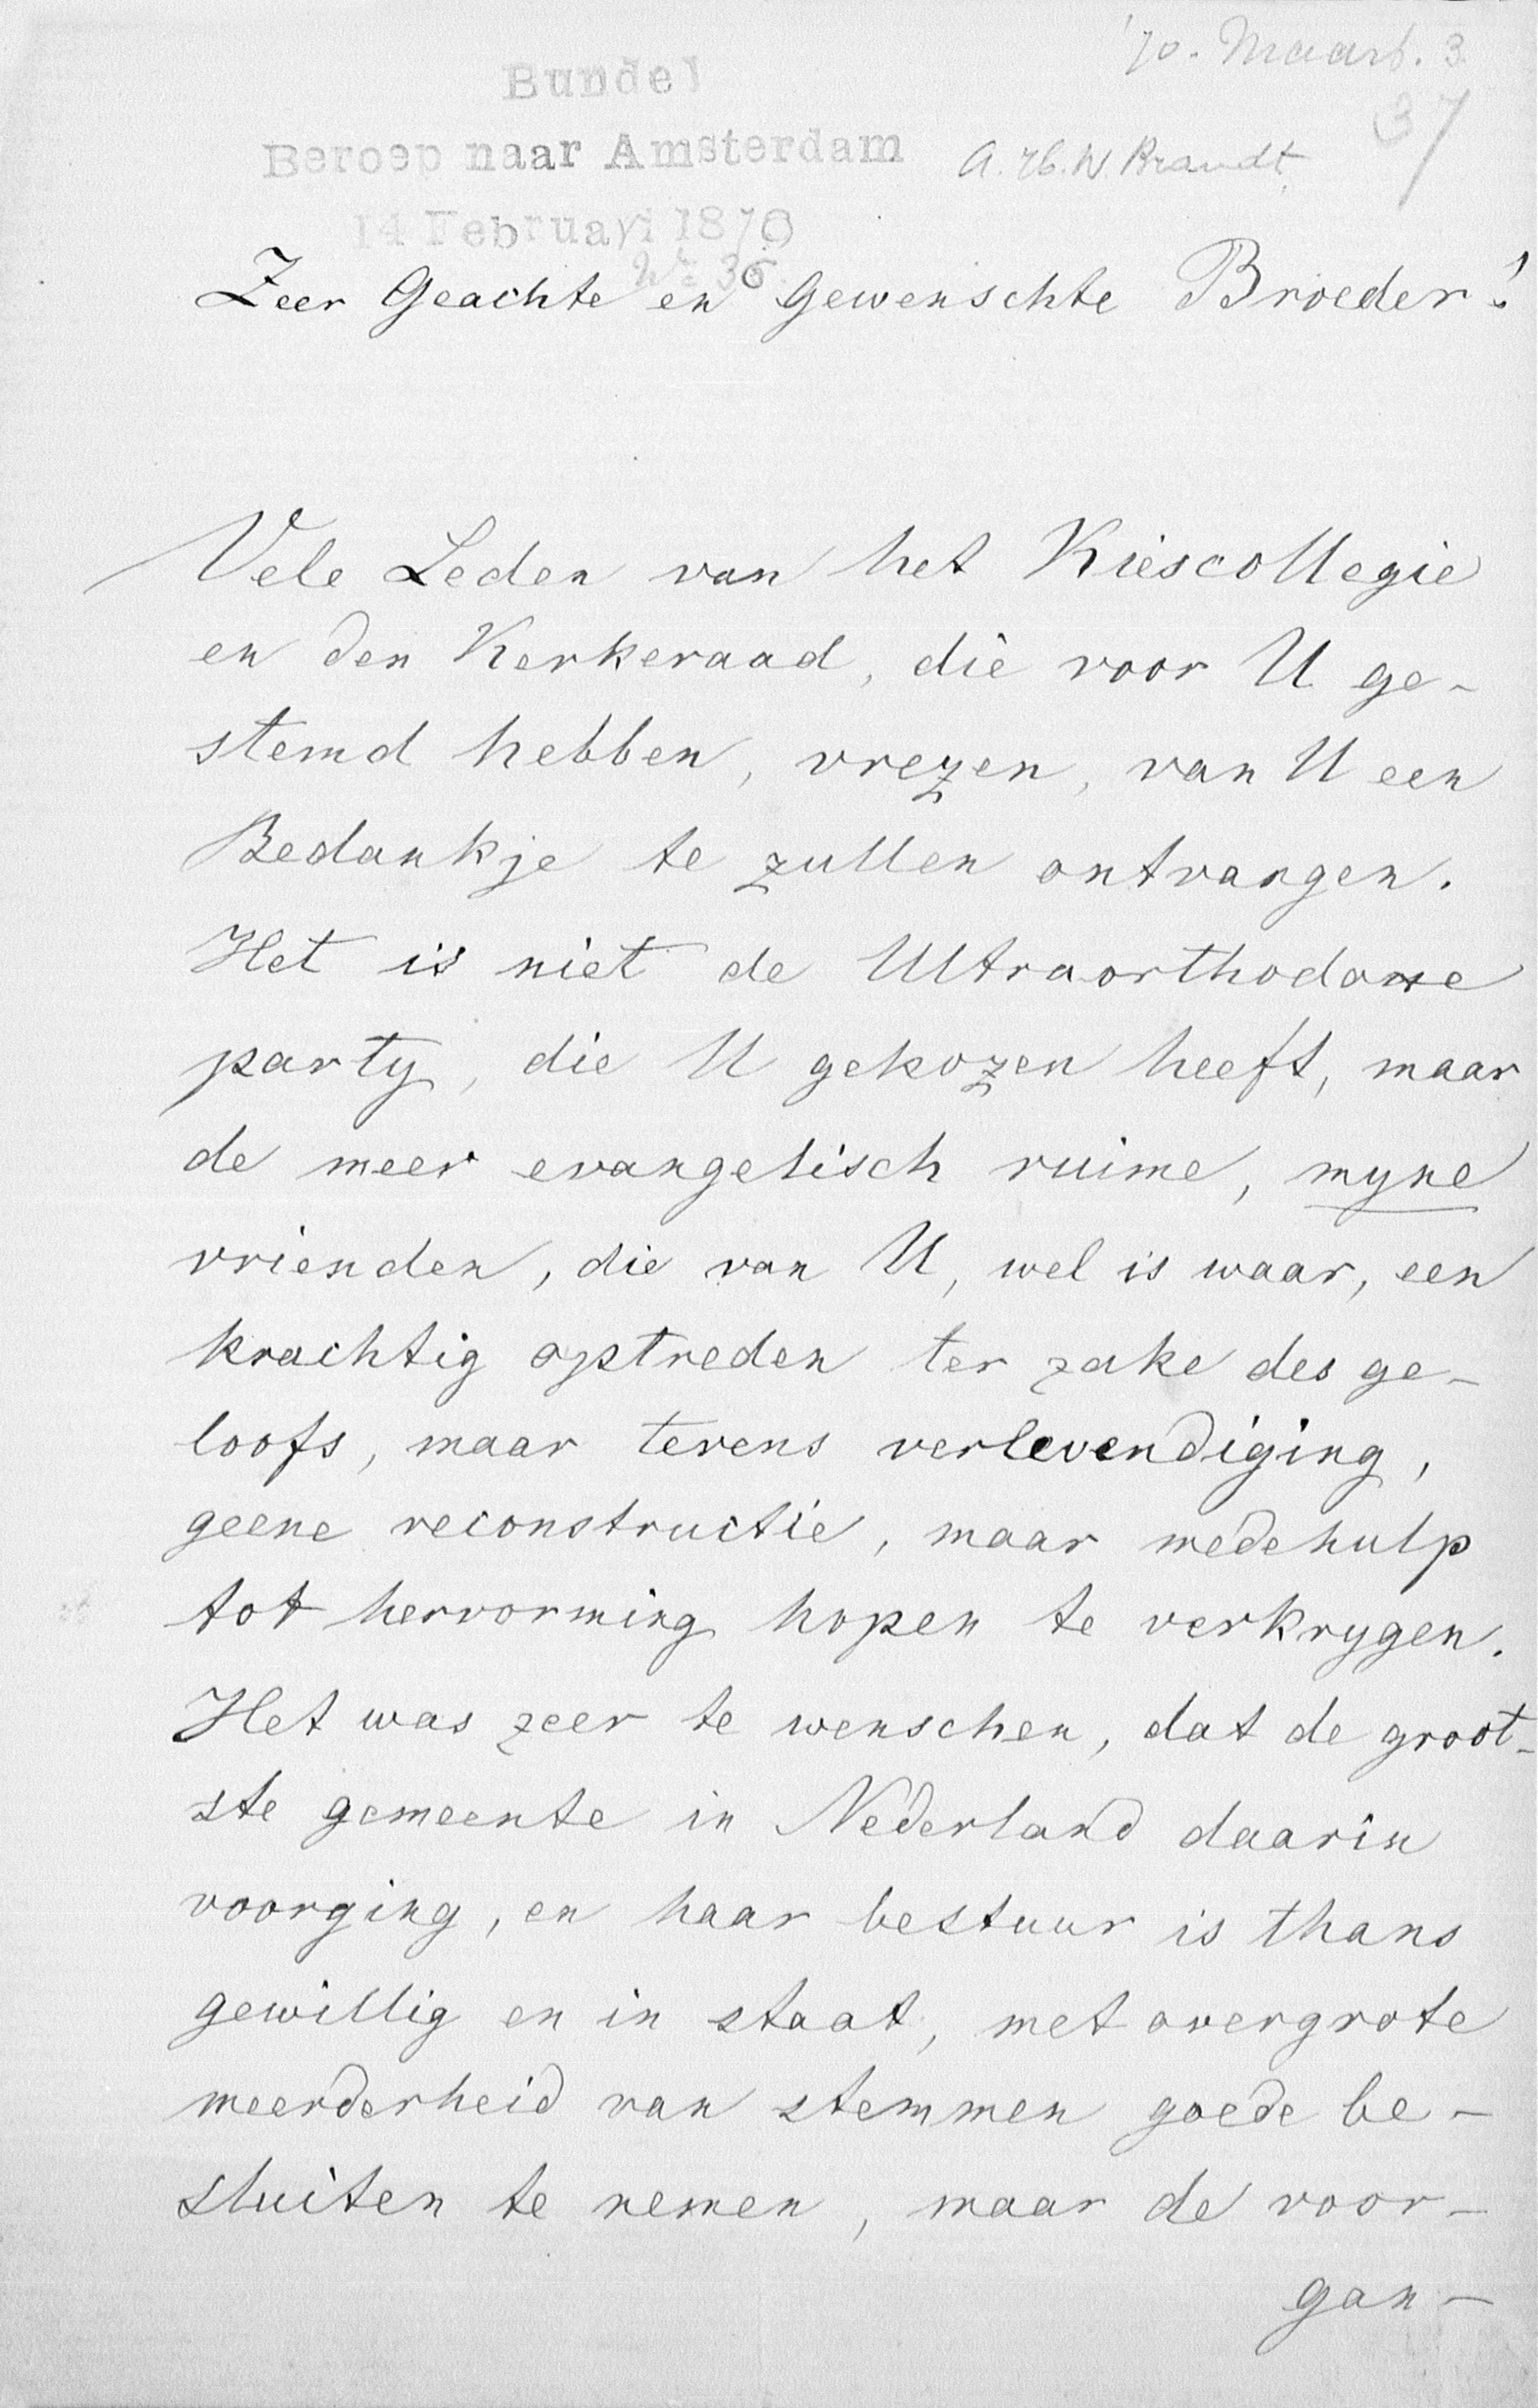 '70. Maart. 3.
Bundel
37
Beroep naar Amsterdam
A. H. W. Brandt
14 Februari 1870
No 36.
Zeer Geachte en Gewenschte Broeder!
Vele Leden van het Kiescollegie
en den Kerkeraad, die voor U ge-
stemd hebben, vrezen, van U een
Bedankje te zullen ontvangen.
Het is niet de Ultraorthodoxe
party, die U gekozen heeft, maar
de meer evangelisch ruime, myne
vrienden, die van U, wel is waar, een
krachtig optreden ter zake des ge-
loofs, maar tevens verlevendiging,
geene reconstructie, maar medehulp
tot hervorming hopen te verkrygen.
Het was zeer te wenschen, dat de groot-
ste gemeente in Nederland daarin
voorging, en haar bestuur is thans
gewillig en in staat, met overgrote
meerderheid van stemmen goede be-
sluiten te nemen, maar de voor-
gan-